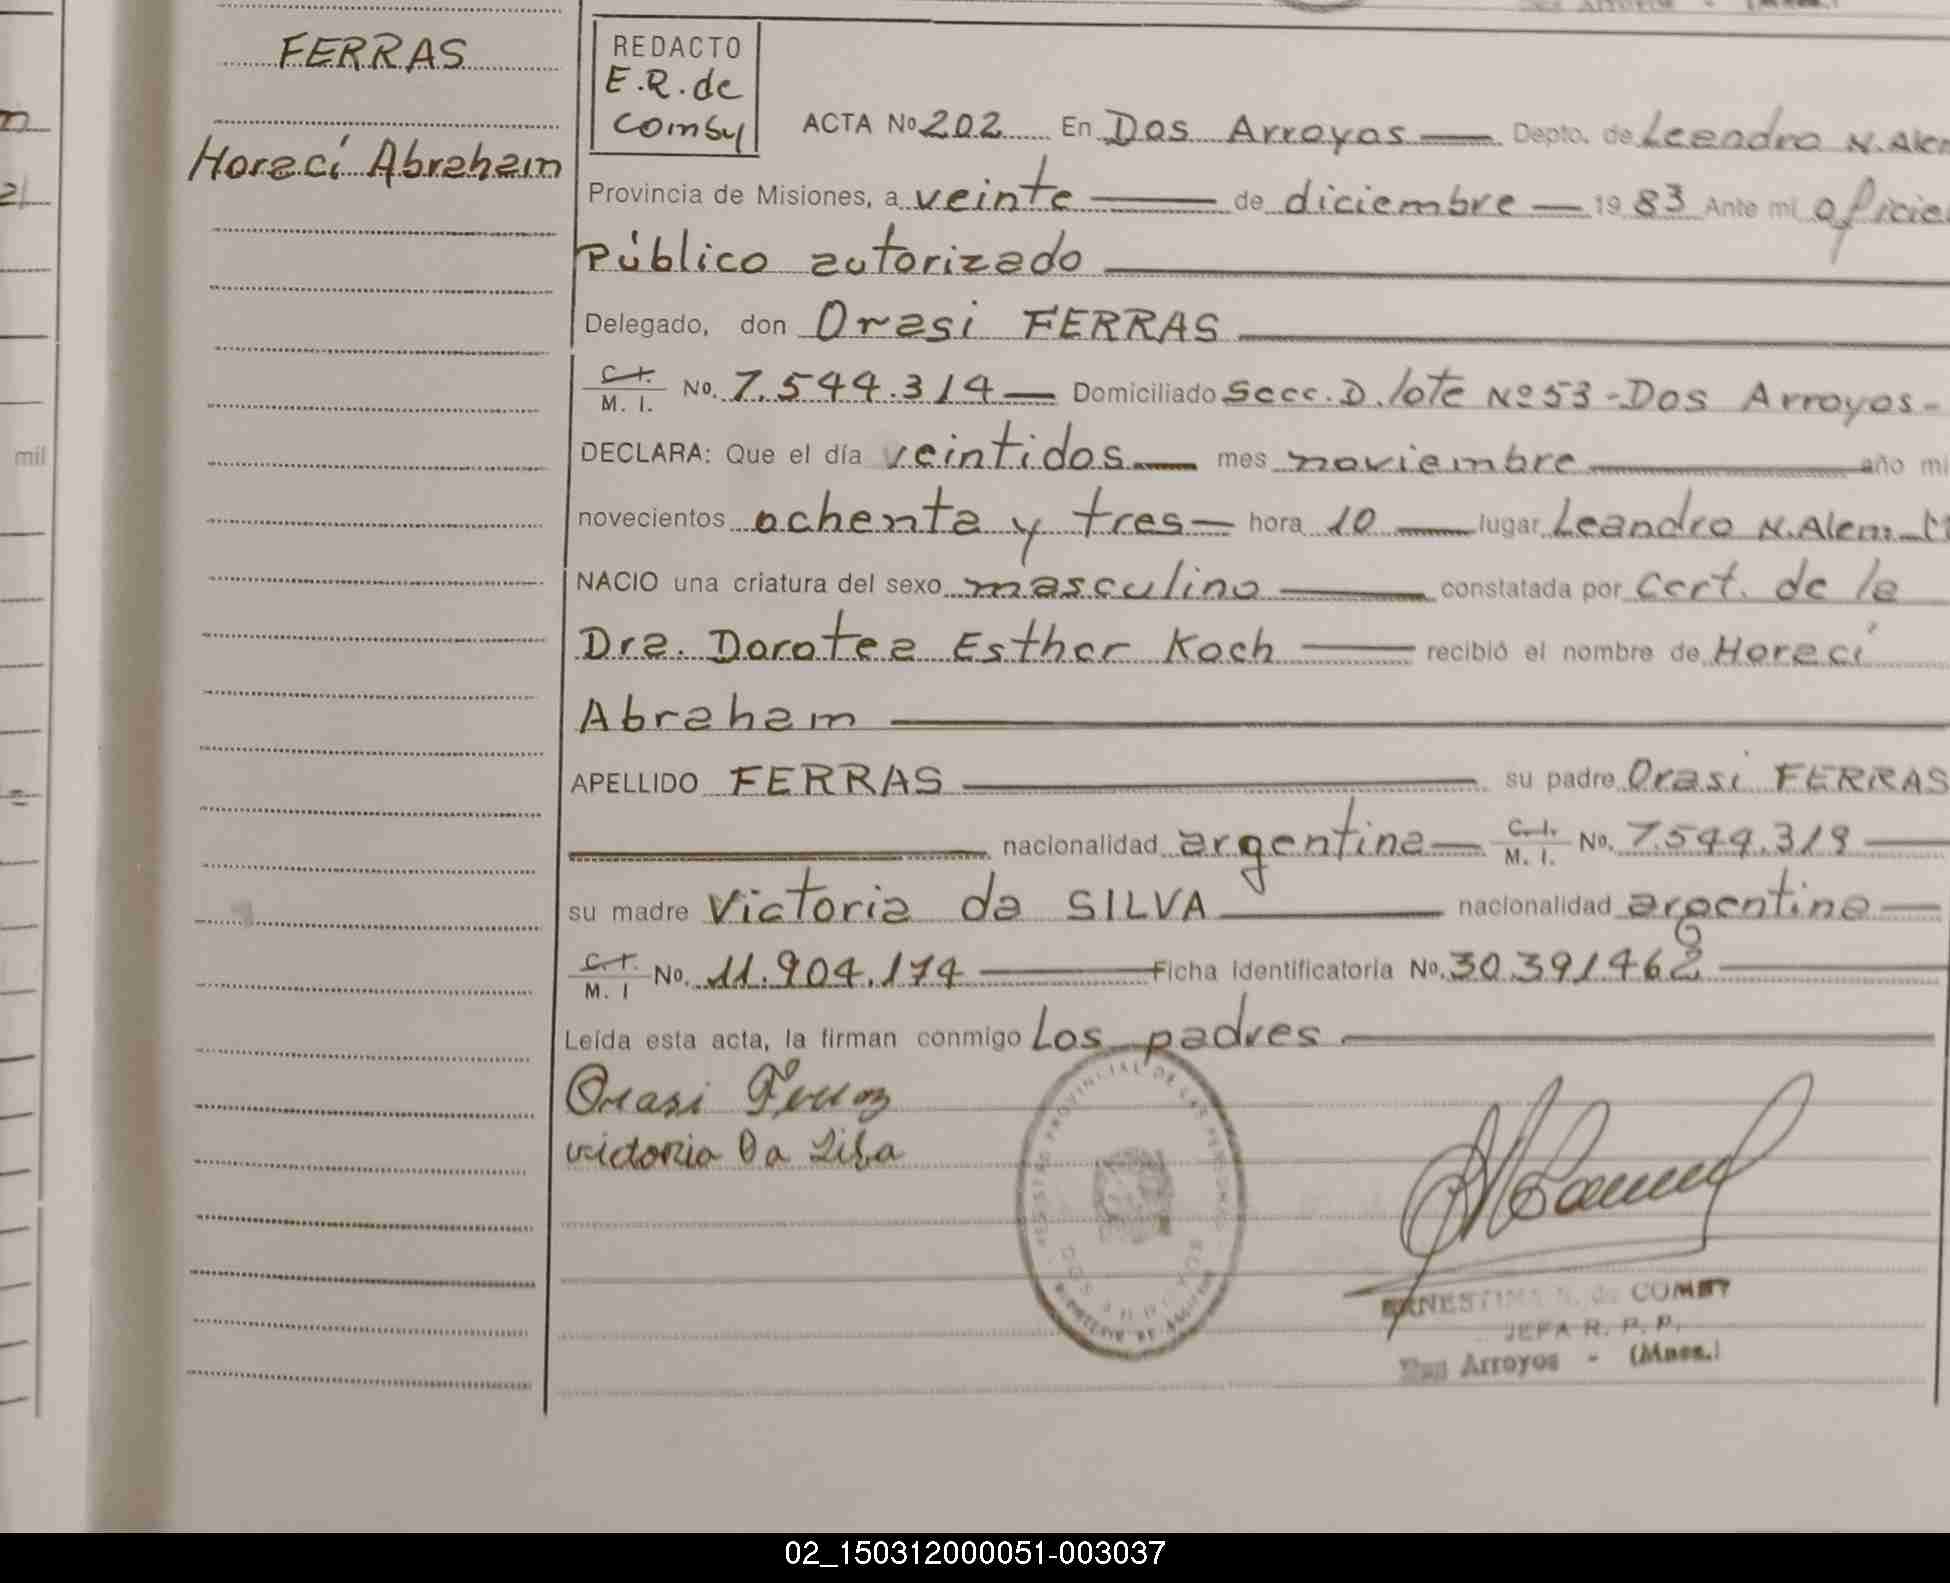 FERRAS
Horací Abraham
REDACTO
E.R. de
Comby
ACTA No 202 En Dos Arroyos Depto. de Leandro N. Alem
Provincia de Misiones, a veinte de diciembre 19 83 Ante mi oficial
Público autorizado
Delegado, don Orasi FERRAS
C.I. M. I. No. 7.544.314 Domiciliado Secc. D. lote Nº 53 - Dos Arroyos -
DECLARA: Que el día veintidos mes noviembre año mil
novecientos ochenta y tres hora 10 lugar Leandro N. Alem
NACIO una criatura del sexo masculino constatada por Cert. de la
Dra. Dorotea Esther Koch recibió el nombre de Horací
Abraham
APELLIDO FERRAS su padre Orasi FERRAS
nacionalidad argentina C.I. M. I. No. 7.544.319
su madre Victoria da SILVA nacionalidad argentina
C.I. M. I No. 11.904.174 Ficha identificatoria No. 30.391462
Leída esta acta, la firman conmigo Los padres
Orasi Ferraz
victoria Da Silba
COMBY
JEFA R. P. P.
Dos Arroyos - (Mnes.)
mil
02_150312000051-003037